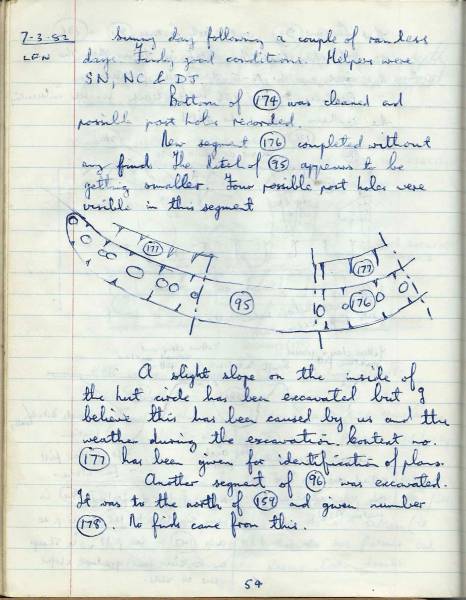 7-3-82 Sunny day following a couple of rainless
LFN days. Fairly good conditions. Helpers were
SN, NC & DJ.
Bottom of (174) was cleaned and
possible post holes recorded.
New segment (176) completed without
any finds. The ditch of (95) appears to be
getting smaller. Four possible post holes were
visible in this segment
(177)
(177)
(95)
(176)
A slight slope on the inside of
the hut circle has been excavated but I
believe this has been caused by us and the
weather during the excavation. Context no.
(177) has been given for identification of plans.
Another segment of (96) was excavated.
It was to the north of (159) and given number
(178). No finds came from this.
54